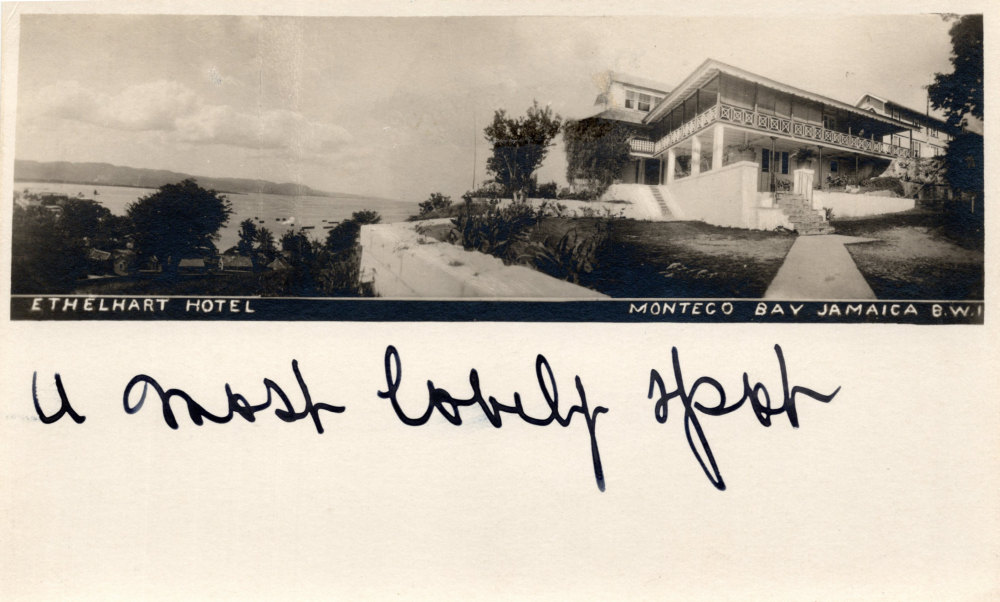 ETHELHART HOTEL
MONTEGO BAY JAMAICA B.W.I
a most lovely spot